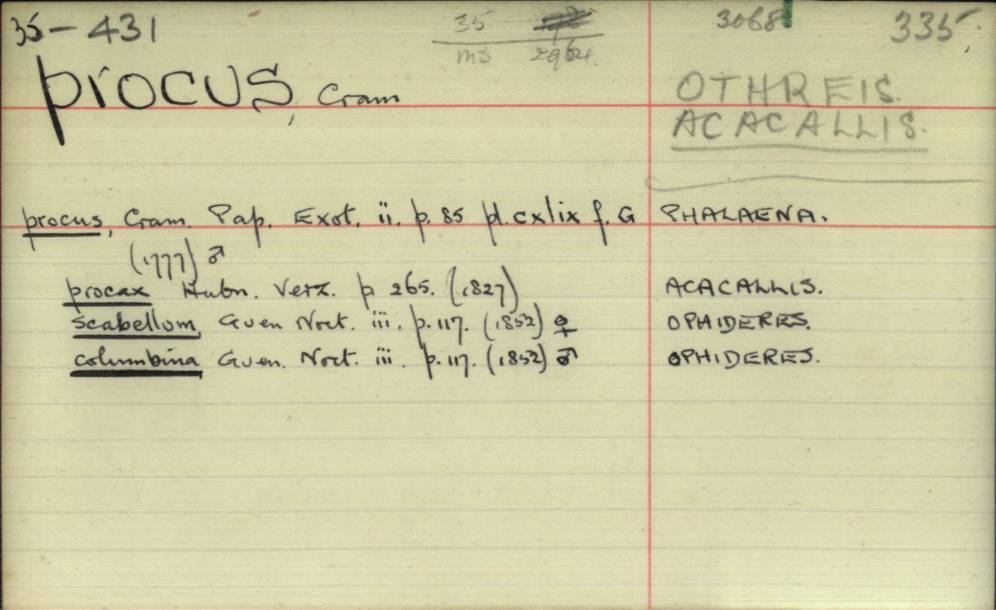 35-431
35
ms 2964.
3068
335.
procus, Cram
OTHREIS.
ACACALLIS.
procus, Cram. Pap. Exot. ii. p. 85 pl. cxlix f. G PHALAENA.
(1777) ♂
procax Hubn. Verz. p 265. (1827) ACACALLIS.
scabellum, Guen Noct. iii. p. 117. (1852) ♀ OPHIDERES.
columbina Guen. Noct. iii. p. 117. (1852) ♂ OPHIDERES.